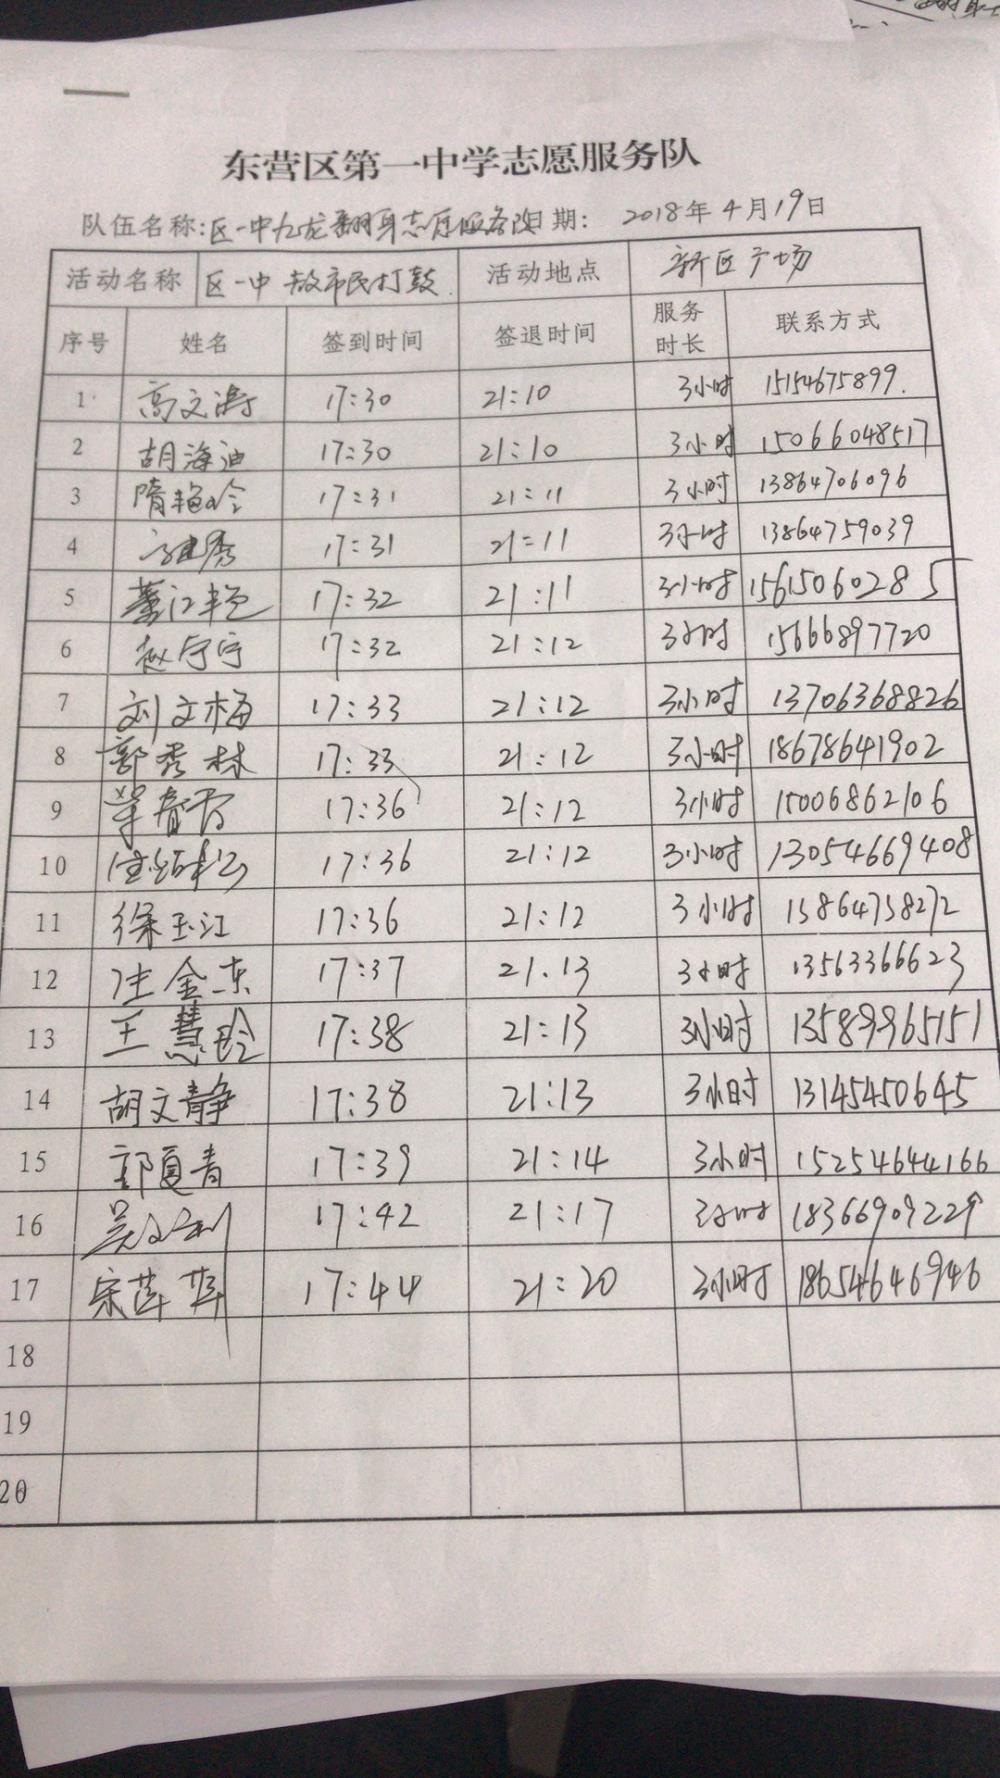 东营区第一中学志愿服务队
队伍名称:区一中九龙翻身志愿服务队 日期: 2018年4月19日
活动名称 区一中教市民打鼓 活动地点 新区广场
序号 姓名 签到时间 签退时间 服务时长 联系方式
1 高文涛 17:30 21:10 3小时 15154675899.
2 胡海迪 17:30 21:10 3小时 15066048517
3 隋艳玲 17:31 21:11 3小时 13864706096
4 17:31 21:11 3小时 13864759039
5 董江艳 17:32 21:11 3小时 15615060285
6 赵宁宁 17:32 21:12 3小时 15666897720
7 刘文梅 17:33 21:12 3小时 13706368826
8 郭秀林 17:33 21:12 3小时 18678641902
9 17:36 21:12 3小时 15006862106
10 17:36 21:12 3小时 13054669408
11 徐玉江 17:36 21:12 3小时 15864758272
12 金东 17:37 21.13 3小时 13563366623
13 王慧玲 17:38 21:13 3小时 13589965151
14 胡文静 17:38 21:13 3小时 13145450645
15 郭夏青 17:39 21:14 3小时 15254644166
16 吴 17:42 21:17 3小时 18366909229
17 宋萍萍 17:44 21:20 3小时 18654646946
18
19
20